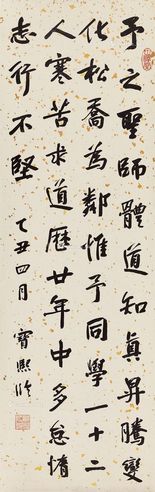 予之聖師體道知真昇騰變
化松喬為鄰惟予同學一十二
人寒苦求道歷廿年中多怠惰
志行不堅
乙丑四月 寶熙臨